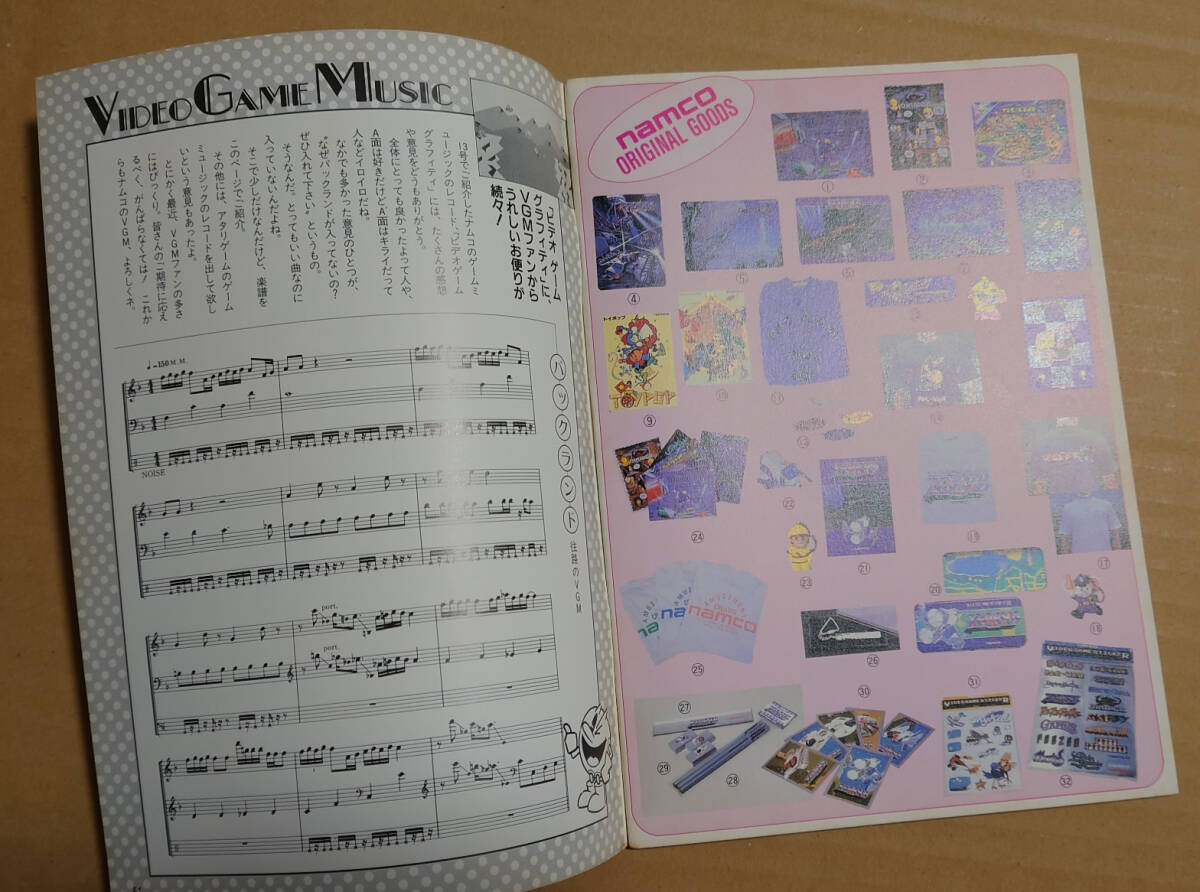 VIDEO GAME MUSIC
「ビデオ ゲーム
グラフィティ」に、
VGMファンから
うれしいお便りが
続々！
13号でご紹介したナムコのゲームミ
ュージックのレコード、「ビデオゲーム
グラフィティ」には、たくさんの感想
や意見をどうもありがとう。
全体にとっても良かったよって人や、
A面は好きだけどA'面はキライだって
人などイロイロだね。
なかでも多かった意見のひとつが、
"なぜパックランドが入ってないの？
ぜひ入れて下さい"というもの。
そうなんだ。とってもいい曲なのに
入っていないんだよね。
そこで少しだけなんだけど、楽譜を
このページでご紹介。
その他には、アタリゲームのゲーム
ミュージックのレコードを出して欲し
いという意見もあったよ。
とにかく最近、VGMファンの多さ
にはびっくり。皆さんのご期待に応え
るべく、がんばらなくては！ これか
らもナムコのVGM、よろしくネ。
パックランド
往路のVGM
♩=150 M.M.
NOISE
port.
port.
namco
ORIGINAL GOODS
①
②
③
④
⑤
⑥
⑦
トイポップ
TOYPOP
⑨
⑩
⑪
⑫
⑬
⑭
PAC-MAN
㉔
㉒
㉓
㉑
⑲
⑰
⑳
⑱
namco
㉕
㉖
㉗
㉘
㉙
㉚
㉛
VIDEO GAME STICKER
VIDEO GAME STICKER
㉜